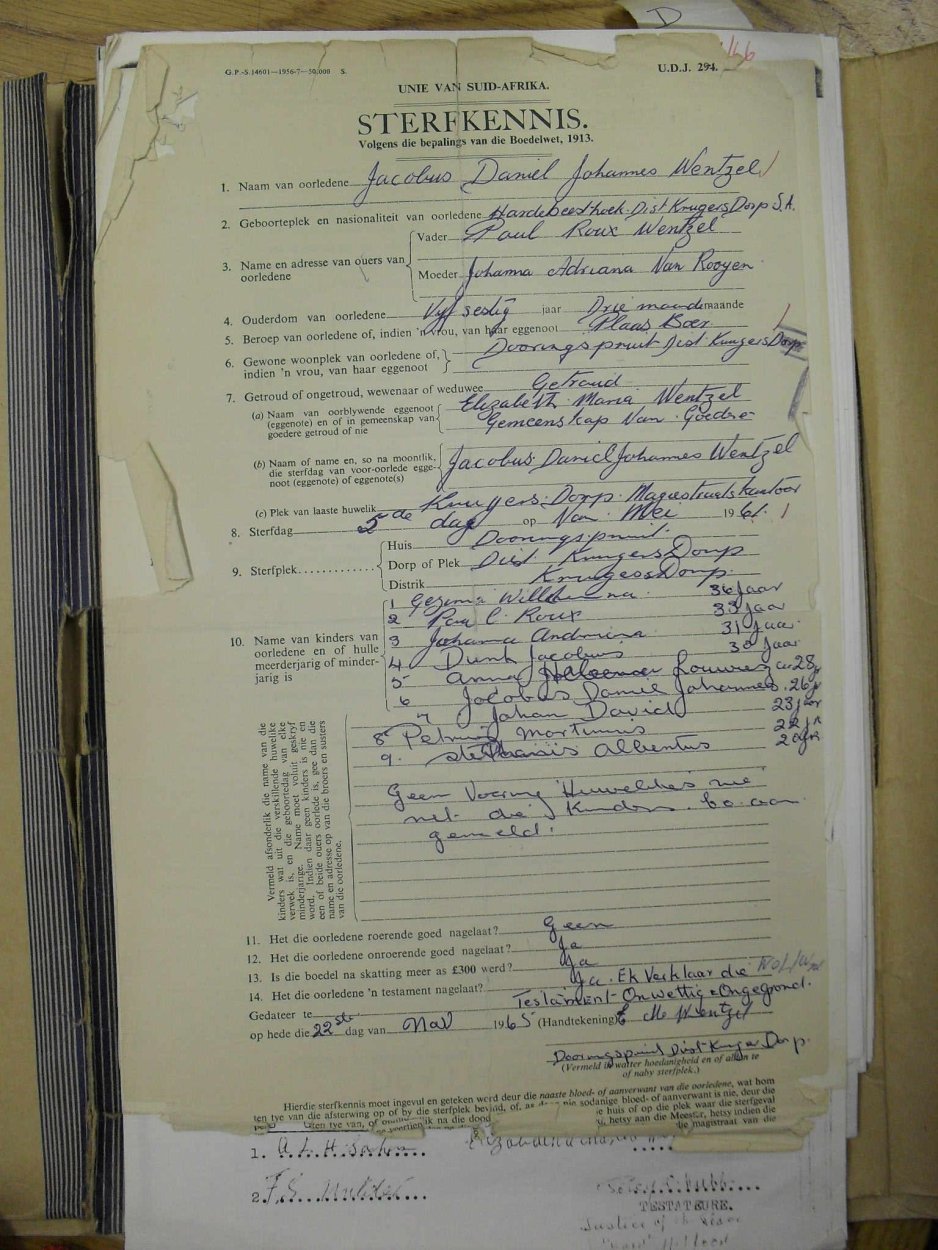 D
166
G.P.-S.14601—1956-7—50,000 S.
U.D.J. 294.
UNIE VAN SUID-AFRIKA.
STERFKENNIS.
Volgens die bepalings van die Boedelwet, 1913.
1. Naam van oorledene Jacobus Daniel Johannes Wentzel
2. Geboorteplek en nasionaliteit van oorledene Hardebeesthoek Dist KrugersDorp S.A.
3. Name en adresse van ouers van oorledene
Vader Paul Roux Wentzel
Moeder Johanna Adriana Van Rooyen
4. Ouderdom van oorledene Vyf sestig jaar Drie maande maande
5. Beroep van oorledene of, indien 'n vrou, van haar eggenoot Plaas Boer
6. Gewone woonplek van oorledene of, indien 'n vrou, van haar eggenoot Dooringspruit Dist KrugersDorp
7. Getroud of ongetroud, wewenaar of weduwee Getroud
(a) Naam van oorblywende eggenoot (eggenote) en of in gemeenskap van goedere getroud of nie
Elizabeth Maria Wentzel
Gemeenskap Van Goedre
(b) Naam of name en, so na moontlik, die sterfdag van voor-oorlede eggenoot (eggenote) of eggenote(s)
Jacobus Daniel Johannes Wentzel
(c) Plek van laaste huwelik Krugers Dorp Magestraats kantoor
8. Sterfdag 5de dag op Van Mei 1961
9. Sterfplek
Huis Dooringspruit
Dorp of Plek Dist KrugersDorp
Distrik KrugersDorp
10. Name van kinders van oorledene en of hulle meerderjarig of minderjarig is
1 Gezina Willemina 36 Jaar
2 Paul Roux 33 Jaar
3 Johanna Andriena 31 Jaar
4 Jacobus 30 Jaar
5 Anna Louwresa 28
6 Jacobus Daniel Johannes 26
7 Johan David 23 Jaar
8 Martinus 22
9. Albertus
Vermeld afsonderlik die name van die kinders wat uit die verskillende huwelike verwek is, en die geboortedag van elke minderjarige. Name moet voluit geskryf word. Indien daar geen kinders is nie en een of beide ouers oorlede is, gee dan die name en adresse op van die broers en susters van die oorledene.
Geen Huwelikes nie
net die Kinders bo aan
gemeld.
11. Het die oorledene roerende goed nagelaat? Geen
12. Het die oorledene onroerende goed nagelaat? Ja
13. Is die boedel na skatting meer as £300 werd? Ja
14. Het die oorledene 'n testament nagelaat? Ja. Ek Verklaar die
Testament Onwettig Ongegrond.
Gedateer te
op hede die 22ste dag van 1965 (Handtekening) E M Wentzel
Dooringspruit Dist Kruger Dorp.
(Vermeld in watter hoedanigheid en of alleen te of naby sterfplek.)
Hierdie sterfkennis moet ingevul en geteken werd deur die naaste bloed- of aanverwant van die oorledene, wat hom
ten tye van die afsterwing op of by die sterfplek bevind, of, as daar nie sodanige bloed- of aanverwant is nie, deur die
ten tye van, of onmiddellik na die dood
e huis of op die plek waar die sterfgeval
hetsy aan die Meester, hetsy indien die
die magistraat van die
1.
2. F.S. Mulder
TESTATEURE.
Justice of